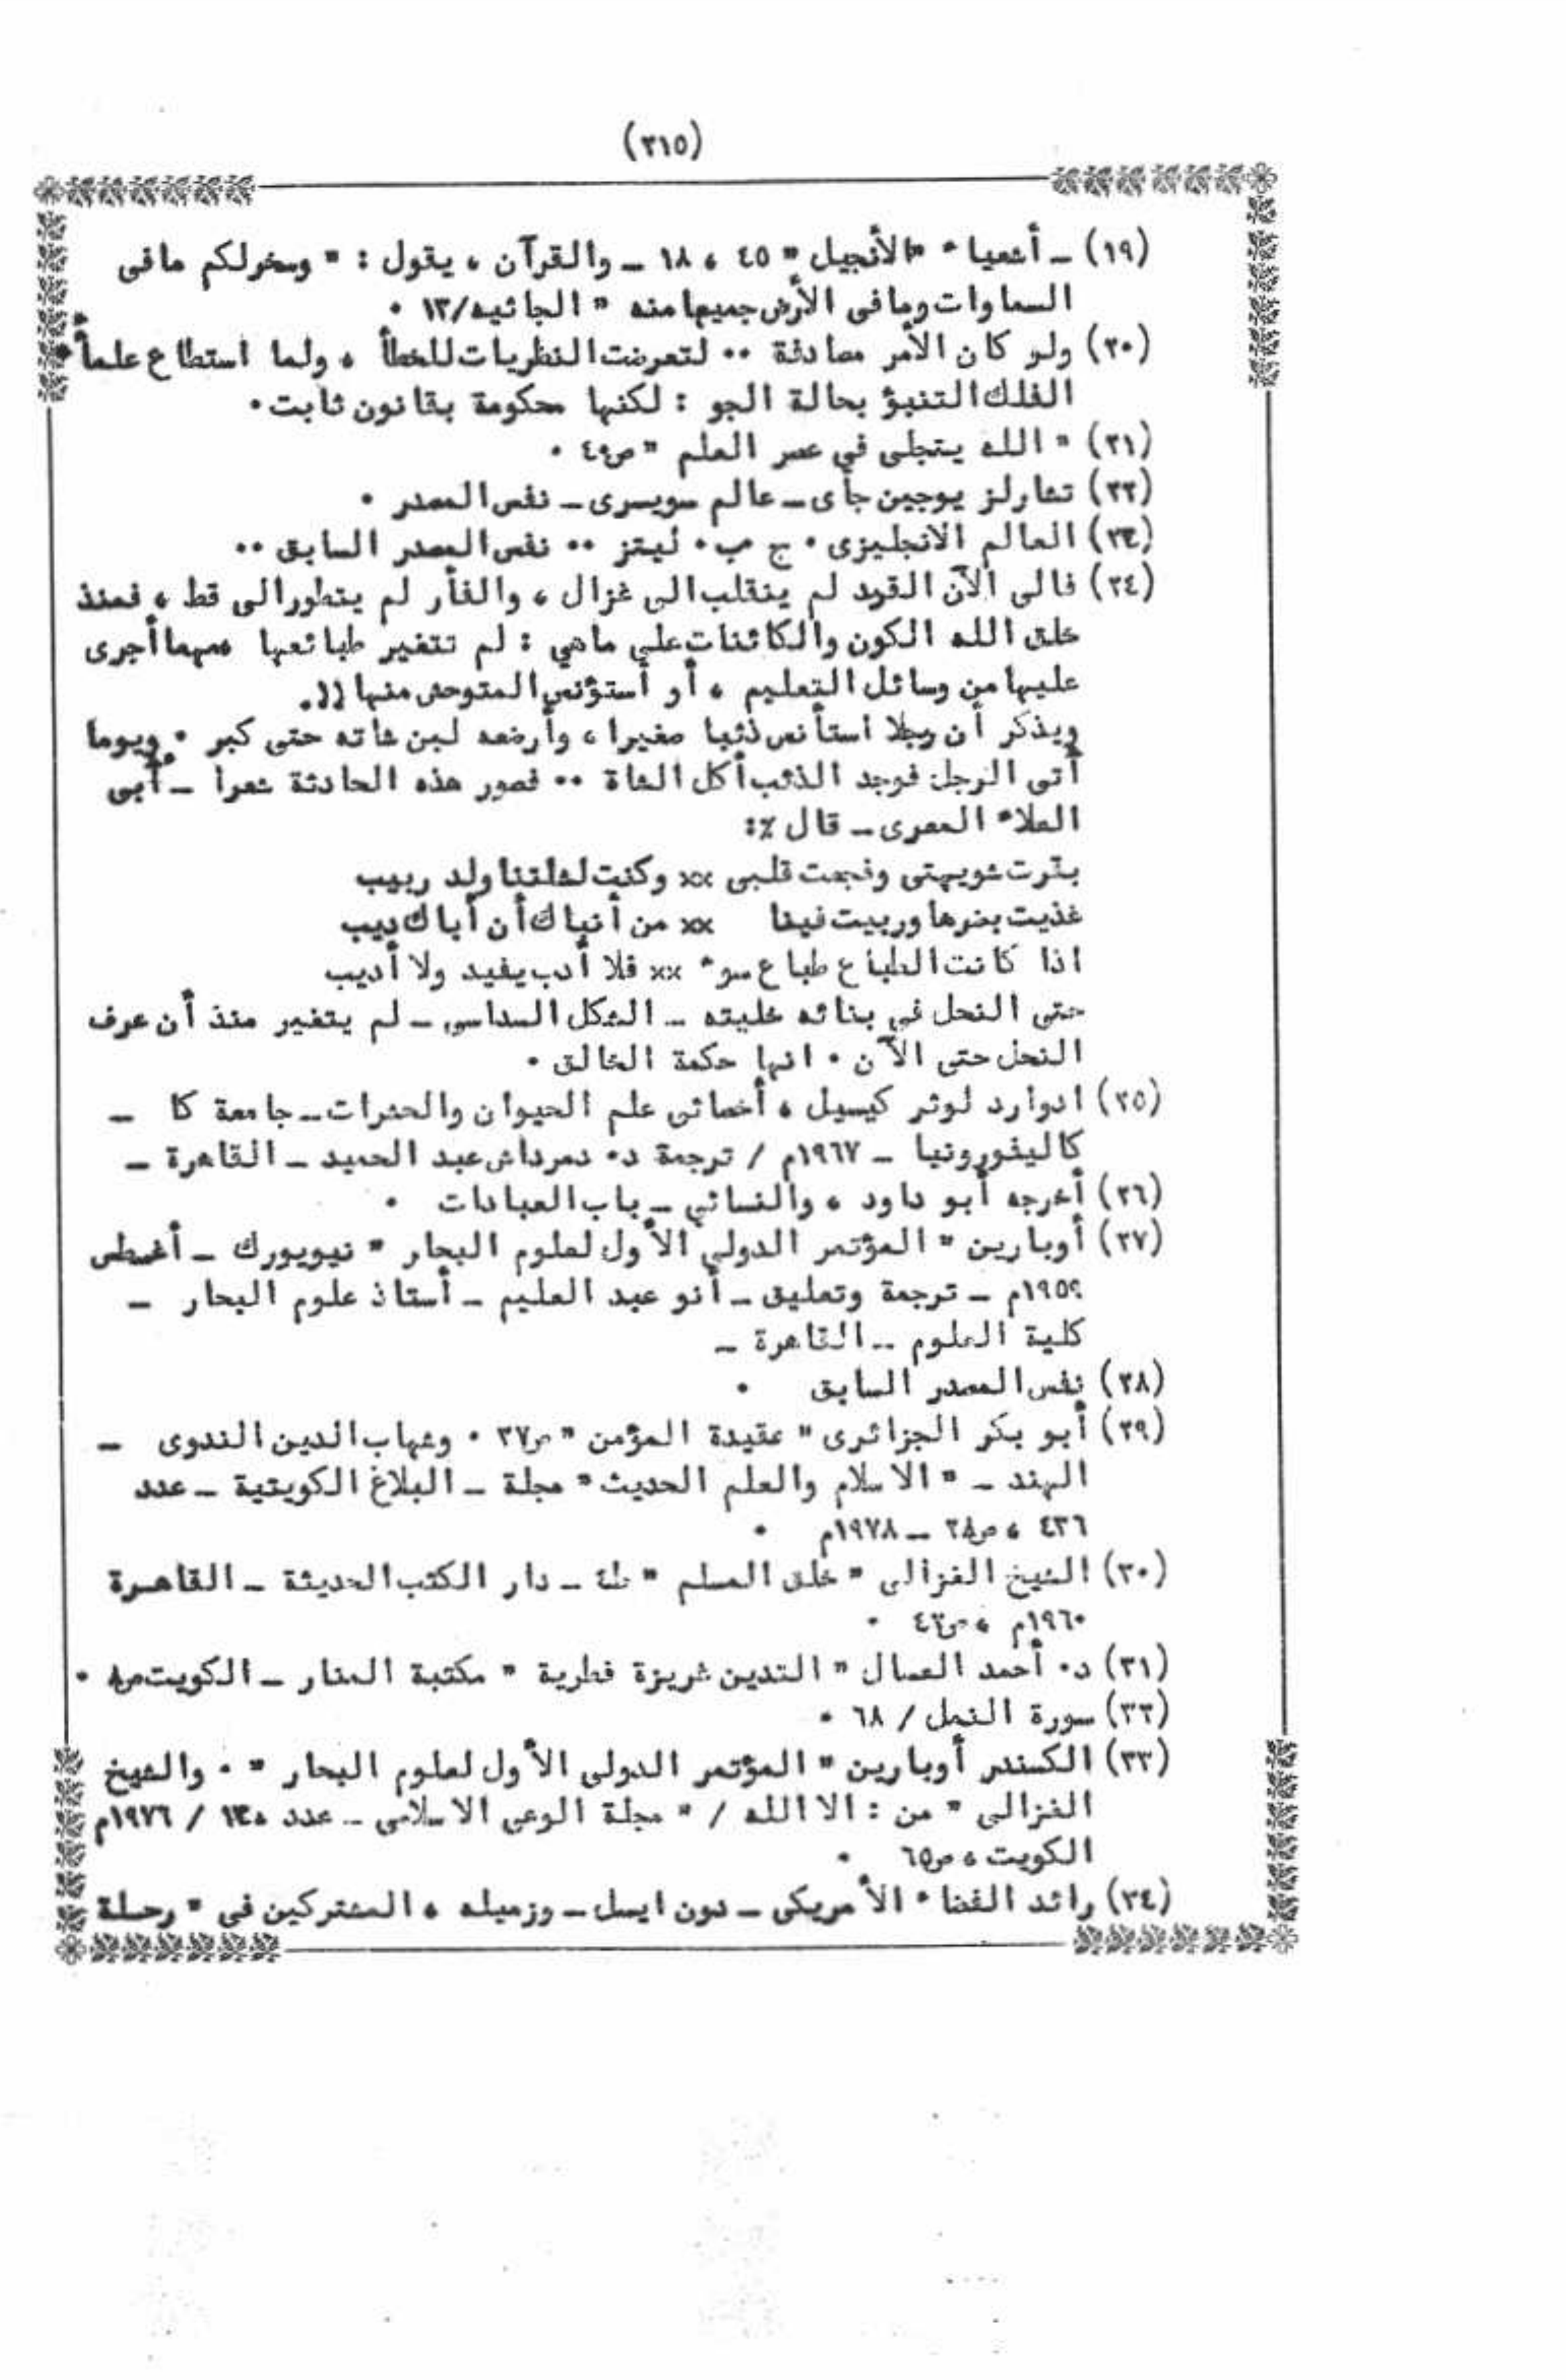 (٣١٥)
(١٩) – أشعياء "الأنجيل" ٤٥ ، ١٨ – والقرآن ، يقول : " وسخرلكم مافى
السماوات ومافى الأرض جميعا منه " الجاثيه/١٣ .
(٢٠) ولو كان الأمر مصادفة .. لتعرضت النظريات للخطأ ، ولما استطاع علماء
الفلك التنبؤ بحالة الجو : لكنها محكومة بقانون ثابت.
(٢١) " الله يتجلى في عصر العلم " ص٤٥ .
(٢٢) تشارلز يوجين جاى – عالم سويسرى – نفس المصدر .
(٢٣) العالم الانجليزى . ج ب . ليتز .. نفس المصدر السابق ..
(٢٤) فالى الآن القرد لم ينقلب الى غزال ، والفأر لم يتطور الى قط ، فمنذ
خلق الله الكون والكائنات على ماهي : لم تتغير طبائعها مهما أجرى
عليها من وسائل التعليم ، أو أستؤنس المتوحش منها !!.
ويذكر أن رجلا استأنس ذئبا صغيرا ، وأرضعه لبن شاته حتى كبر . ويوما
أتى الرجل فوجد الذئب أكل الشاة .. فصور هذه الحادثة شعرا – أبى
العلاء المعرى – قال ٪:
بقرت شويهتى وفجعت قلبى ×× وكنت لشاتنا ولد ربيب
غذيت بضرها وربيت فينا ×× من أنباك أن أباك ديب
اذا كانت الطباع طباع سوء ×× فلا أدب يفيد ولا أديب
حتى النحل في بنائه خليته – الشكل السداسى – لم يتغير منذ أن عرف
النحل حتى الآن . انها حكمة الخالق .
(٢٥) ادوارد لوثر كيسيل ، أخصائى علم الحيوان والحشرات – جامعة كا –
كاليفورونيا – ١٩٦٧م / ترجمة د. دمرداش عبد الحميد – القاهرة –
(٢٦) أخرجه أبو داود ، والنسائي – باب العبادات .
(٢٧) أوبارين " المؤتمر الدولي الأول لعلوم البحار " نيويورك – أغسطس
١٩٥٩م – ترجمة وتعليق – أنو عبد العليم – أستاذ علوم البحار –
كلية العلوم – القاهرة –
(٢٨) نفس المصدر السابق .
(٢٩) أبو بكر الجزائرى " عقيدة المؤمن " ص٣٧ . وشهاب الدين الندوى –
الهند – " الاسلام والعلم الحديث " مجلة – البلاغ الكويتية – عدد
٤٣٦ ، ص٢٨ – ١٩٧٨م .
(٣٠) الشيخ الغزالى " خلق المسلم " ط٤ – دار الكتب الحديثة – القاهرة
١٩٦٠م ، ص٤٦ .
(٣١) د. أحمد العسال " التدين غريزة فطرية " مكتبة المنار – الكويت ص٨ .
(٣٢) سورة النمل / ٦٨ .
(٣٣) الكسندر أوبارين " المؤتمر الدولى الأول لعلوم البحار " . والشيخ
الغزالى " من : الا الله / " مجلة الوعى الاسلامى – عدد / ١٩٧٦م
الكويت ، ص٦٥ .
(٣٤) رائد الفضاء الأمريكى – دون ايسل – وزميله ، المشتركين فى " رحلة